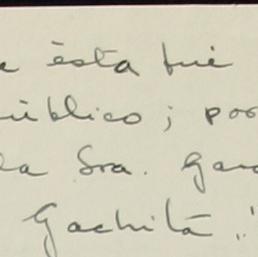 e ésta fué
úblico; por
la Sra. Gar
Gachitá."